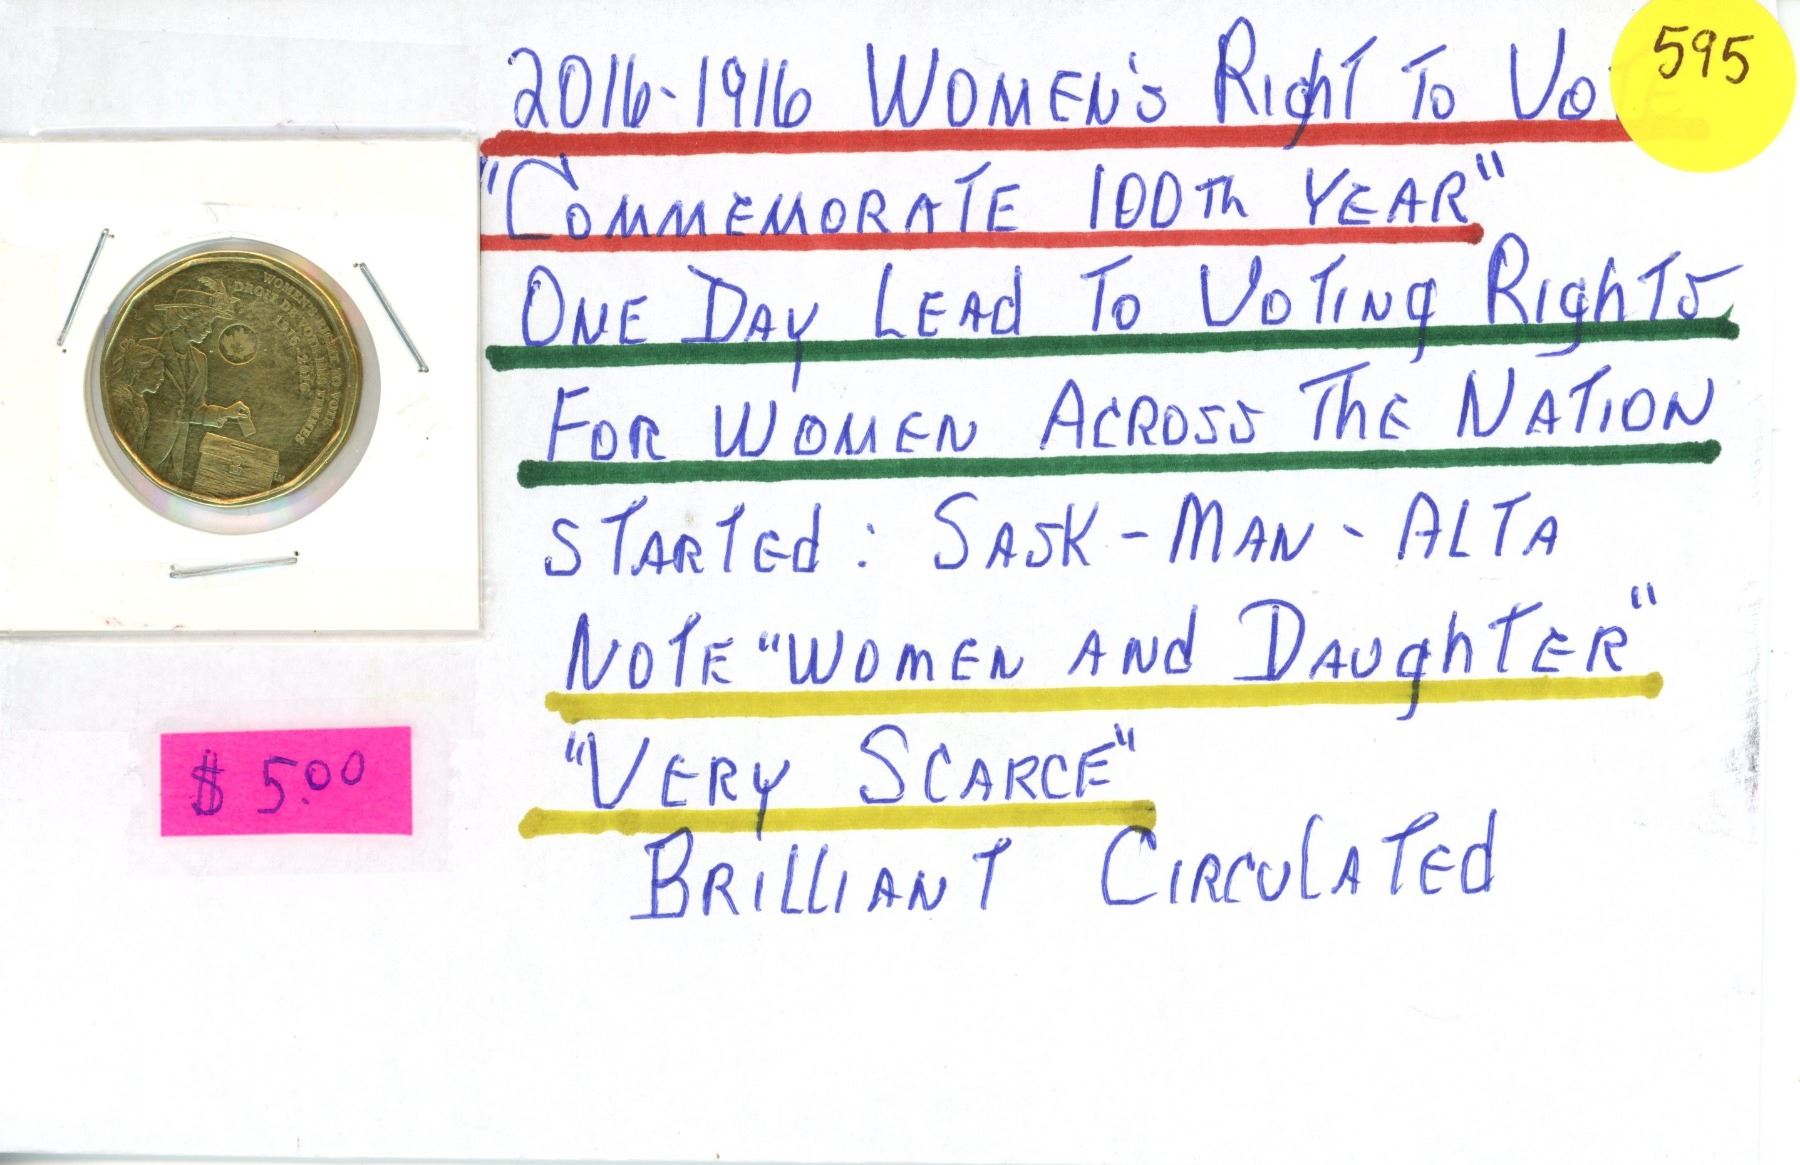 595
2016-1916 WOMEN'S RIGHT TO VOTE
"COMMEMORATE 100TH YEAR"
ONE DAY LEAD TO VOTING RIGHTS
FOR WOMEN ACROSS THE NATION
STARTED: SASK-MAN-ALTA
NOTE "WOMEN AND DAUGHTER"
"VERY SCARCE"
BRILLIANT CIRCULATED
$5.00
WOMEN'S
DROIT DE VOTE DES FEMMES
1916-2016